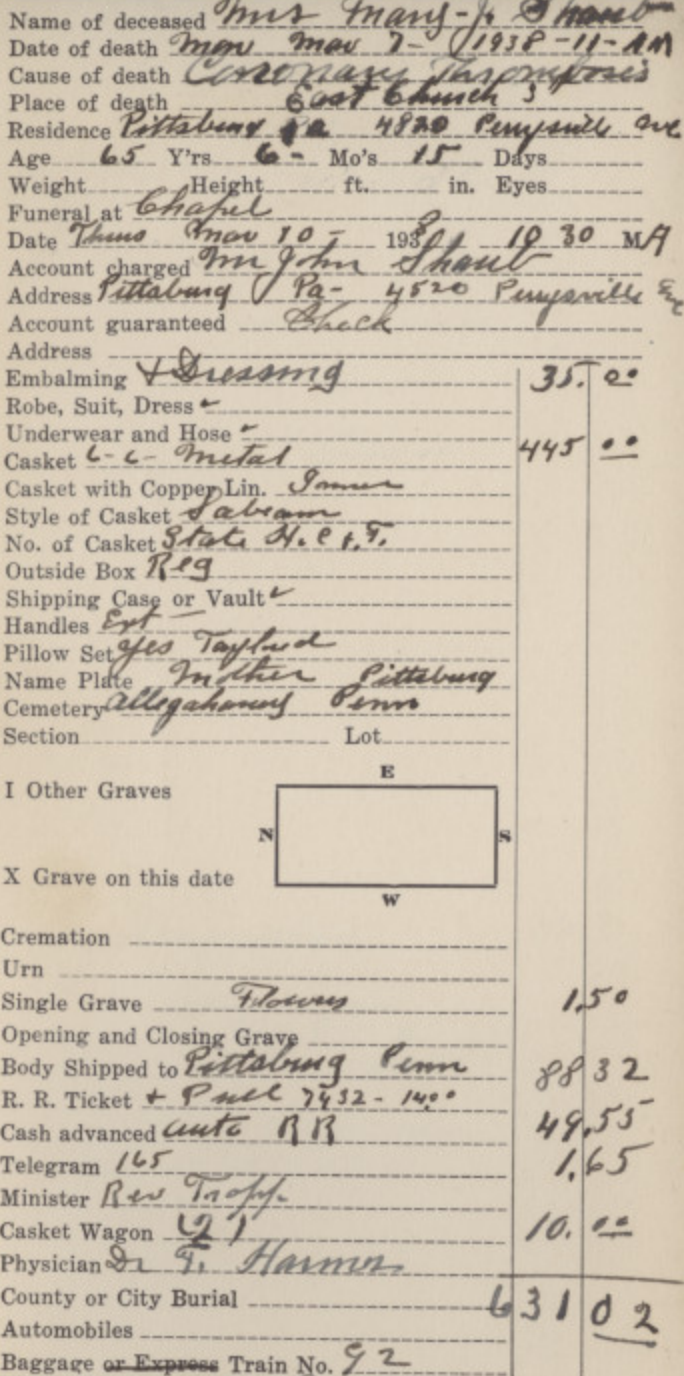 Name of deceased Mrs Mary J. Shaub
Date of death Mon Mar 7 - 1938 - 11 - AM
Cause of death Coronary Thrombosis
Place of death East Church St
Residence Pittsburg Pa 4820 Perrysville Ave
Age 65 Y'rs 6 - Mo's 15 Days
Weight Height ft. in. Eyes
Funeral at Chapel
Date Thurs Mar 10 - 1938 10 30 MA
Account charged Mr John Shaub
Address Pittsburg Pa - 4520 Perrysville Ave
Account guaranteed Check
Address
Embalming + Dressing 35.00
Robe, Suit, Dress
Underwear and Hose
Casket 6-6- Metal 445 00
Casket with Copper Lin. Inner
Style of Casket
No. of Casket State H. C & F.
Outside Box Reg
Shipping Case or Vault
Handles Ext
Pillow Set yes
Name Plate Mother Pittsburg
Cemetery Allegahany Penn
Section Lot
E
I Other Graves
N S
X Grave on this date
W
Cremation
Urn
Single Grave Flowers 1.50
Opening and Closing Grave
Body Shipped to Pittsburg Penn 88 32
R. R. Ticket + Pull 7432 - 14.00
Cash advanced Auto RR 49.55
Telegram 165 1.65
Minister Rev
Casket Wagon 10.00
Physician Dr F. Harmon
County or City Burial 631 02
Automobiles
Baggage or Express Train No. 92